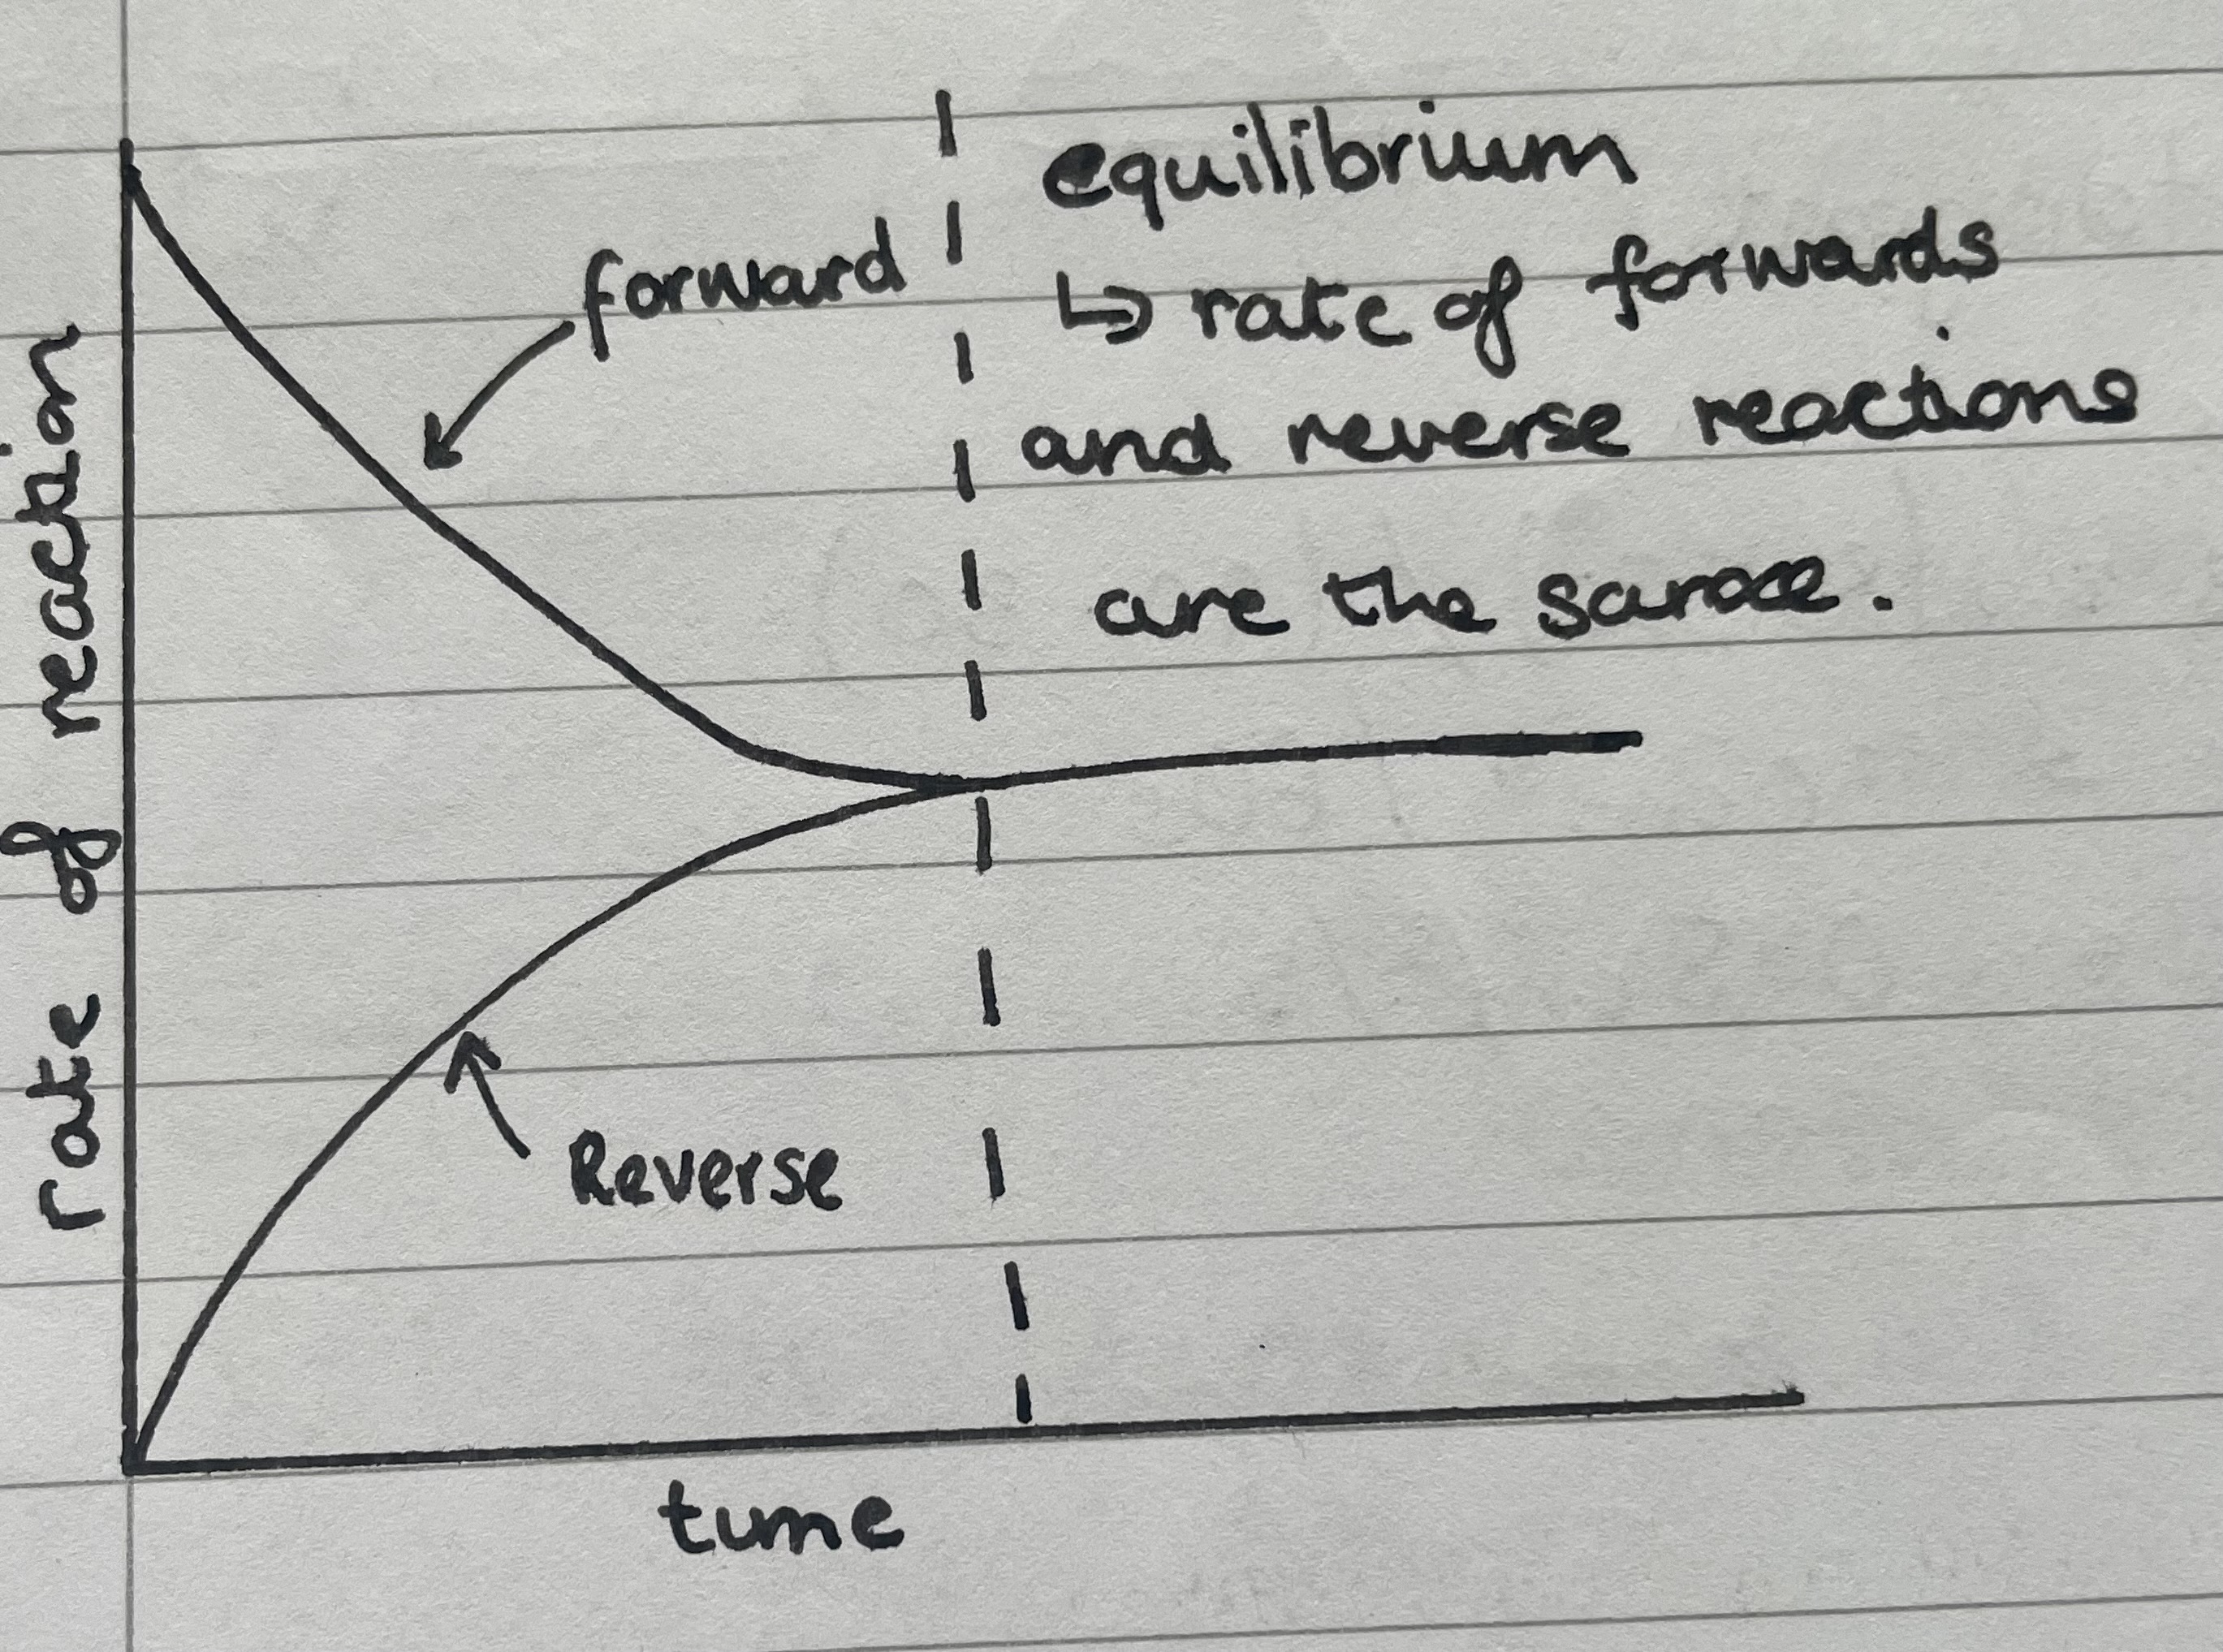 rate of reaction
forward
equilibrium
↳ rate of forwards
and reverse reactions
are the same.
Reverse
time